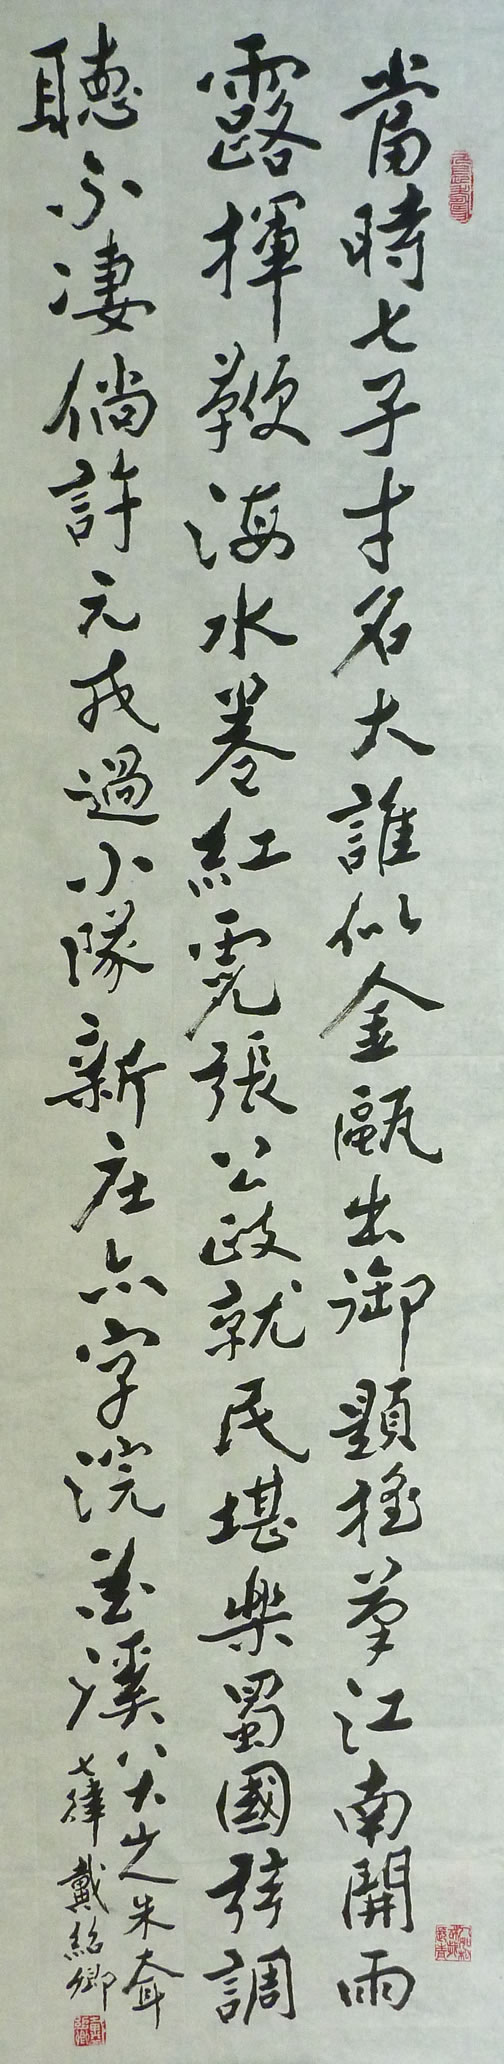 當時七子才名大誰似金甌出御題搖筆江南開雨
露揮鞭海水卷紅霓張公政就民堪樂蜀國弦調
聽不凄倘許元戎過小隊新庄亦字浣花溪
八大山人朱耷
七律 戴紹卿